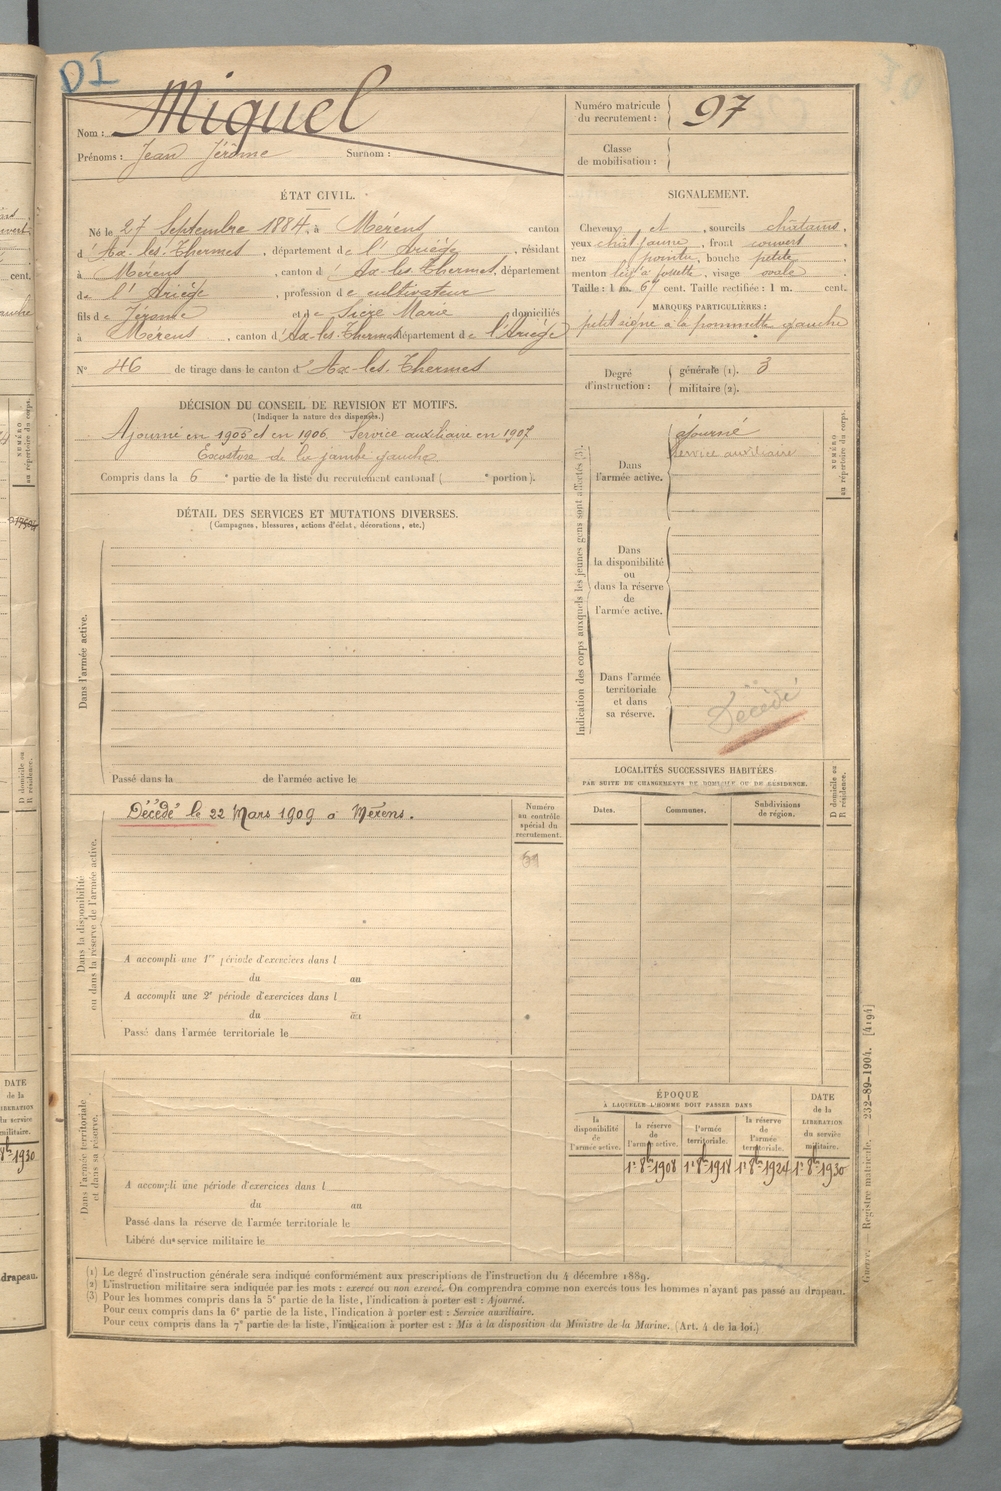 DI
Nom : Miquel
Prénoms : Jean Jérôme Surnom :
Numéro matricule
du recrutement : 97
Classe
de mobilisation :
ÉTAT CIVIL.
Né le 27 Septembre 1884, à Mérens canton
d' Ax-les-Thermes, département de l'Ariège, résidant
à Mérens, canton d' Ax-les-Thermes, département
de l'Ariège, profession de cultivateur
fils de Jérôme et de Sicre Marie domiciliés
à Mérens, canton d'Ax-les-Thermes département de l'Ariège
N° 46 de tirage dans le canton d' Ax-les-Thermes
SIGNALEMENT.
Cheveux et sourcils châtains,
yeux chat. jaune, front couvert,
nez pointu, bouche petite,
menton à fossette, visage ovale.
Taille : 1 m. 67 cent. Taille rectifiée : 1 m. cent.
MARQUES PARTICULIÈRES :
petit signe à la pommette gauche
Degré
d'instruction :
générale (1). 3
militaire (2).
DÉCISION DU CONSEIL DE REVISION ET MOTIFS.
(Indiquer la nature des dispenses.)
Ajourné en 1905 et en 1906. Service auxiliaire en 1907
Exostose de la jambe gauche.
Compris dans la 6e partie de la liste du recrutement cantonal ( e portion).
DÉTAIL DES SERVICES ET MUTATIONS DIVERSES.
(Campagnes, blessures, actions d'éclat, décorations, etc.)
Dans l'armée active.
Passé dans la de l'armée active le
Indication des corps auxquels les jeunes gens sont affectés (3).
Dans
l'armée active.
ajourné
Service auxiliaire
NUMÉRO
au répertoire du corps.
Dans
la disponibilité
ou
dans la réserve
de
l'armée active.
Dans l'armée
territoriale
et dans
sa réserve.
Décédé
Dans la disponibilité
ou dans la réserve de l'armée active.
Décédé le 22 Mars 1909 à Mérens.
Numéro
au contrôle
spécial du
recrutement.
A accompli une 1re période d'exercices dans l
du au
A accompli une 2e période d'exercices dans l
du au
Passé dans l'armée territoriale le
LOCALITÉS SUCCESSIVES HABITÉES
PAR SUITE DE CHANGEMENTS DE DOMICILE OU DE RÉSIDENCE.
Dates. Communes. Subdivisions
de région.
D domicile ou
R résidence.
Dans l'armée territoriale
et dans sa réserve.
A accompli une période d'exercices dans l
du au
Passé dans la réserve de l'armée territoriale le
Libéré du service militaire le
ÉPOQUE
À LAQUELLE L'HOMME DOIT PASSER DANS
la
disponibilité
de
l'armée active.
la réserve
de
l'armée active.
l'armée
territoriale.
la réserve
de
l'armée
territoriale.
DATE
de la
LIBÉRATION
du service
militaire.
1r 8bre 1908 1r 8bre 1918 1r 8bre 1924 1r 8bre 1930
(1) Le degré d'instruction générale sera indiqué conformément aux prescriptions de l'instruction du 4 décembre 1889.
(2) L'instruction militaire sera indiquée par les mots : exercé ou non exercé. On comprendra comme non exercés tous les hommes n'ayant pas passé au drapeau.
(3) Pour les hommes compris dans la 5e partie de la liste, l'indication à porter est : Ajourné.
Pour ceux compris dans la 6e partie de la liste, l'indication à porter est : Service auxiliaire.
Pour ceux compris dans la 7e partie de la liste, l'indication à porter est : Mis à la disposition du Ministre de la Marine. (Art. 4 de la loi.)
Guerre. Registre matricule. 232-89-1904. [4194]
cent.
NUMÉRO
au répertoire du corps.
D domicile ou
R résidence.
DATE
de la
LIBÉRATION
du service
militaire.
8bre 1930
drapeau.